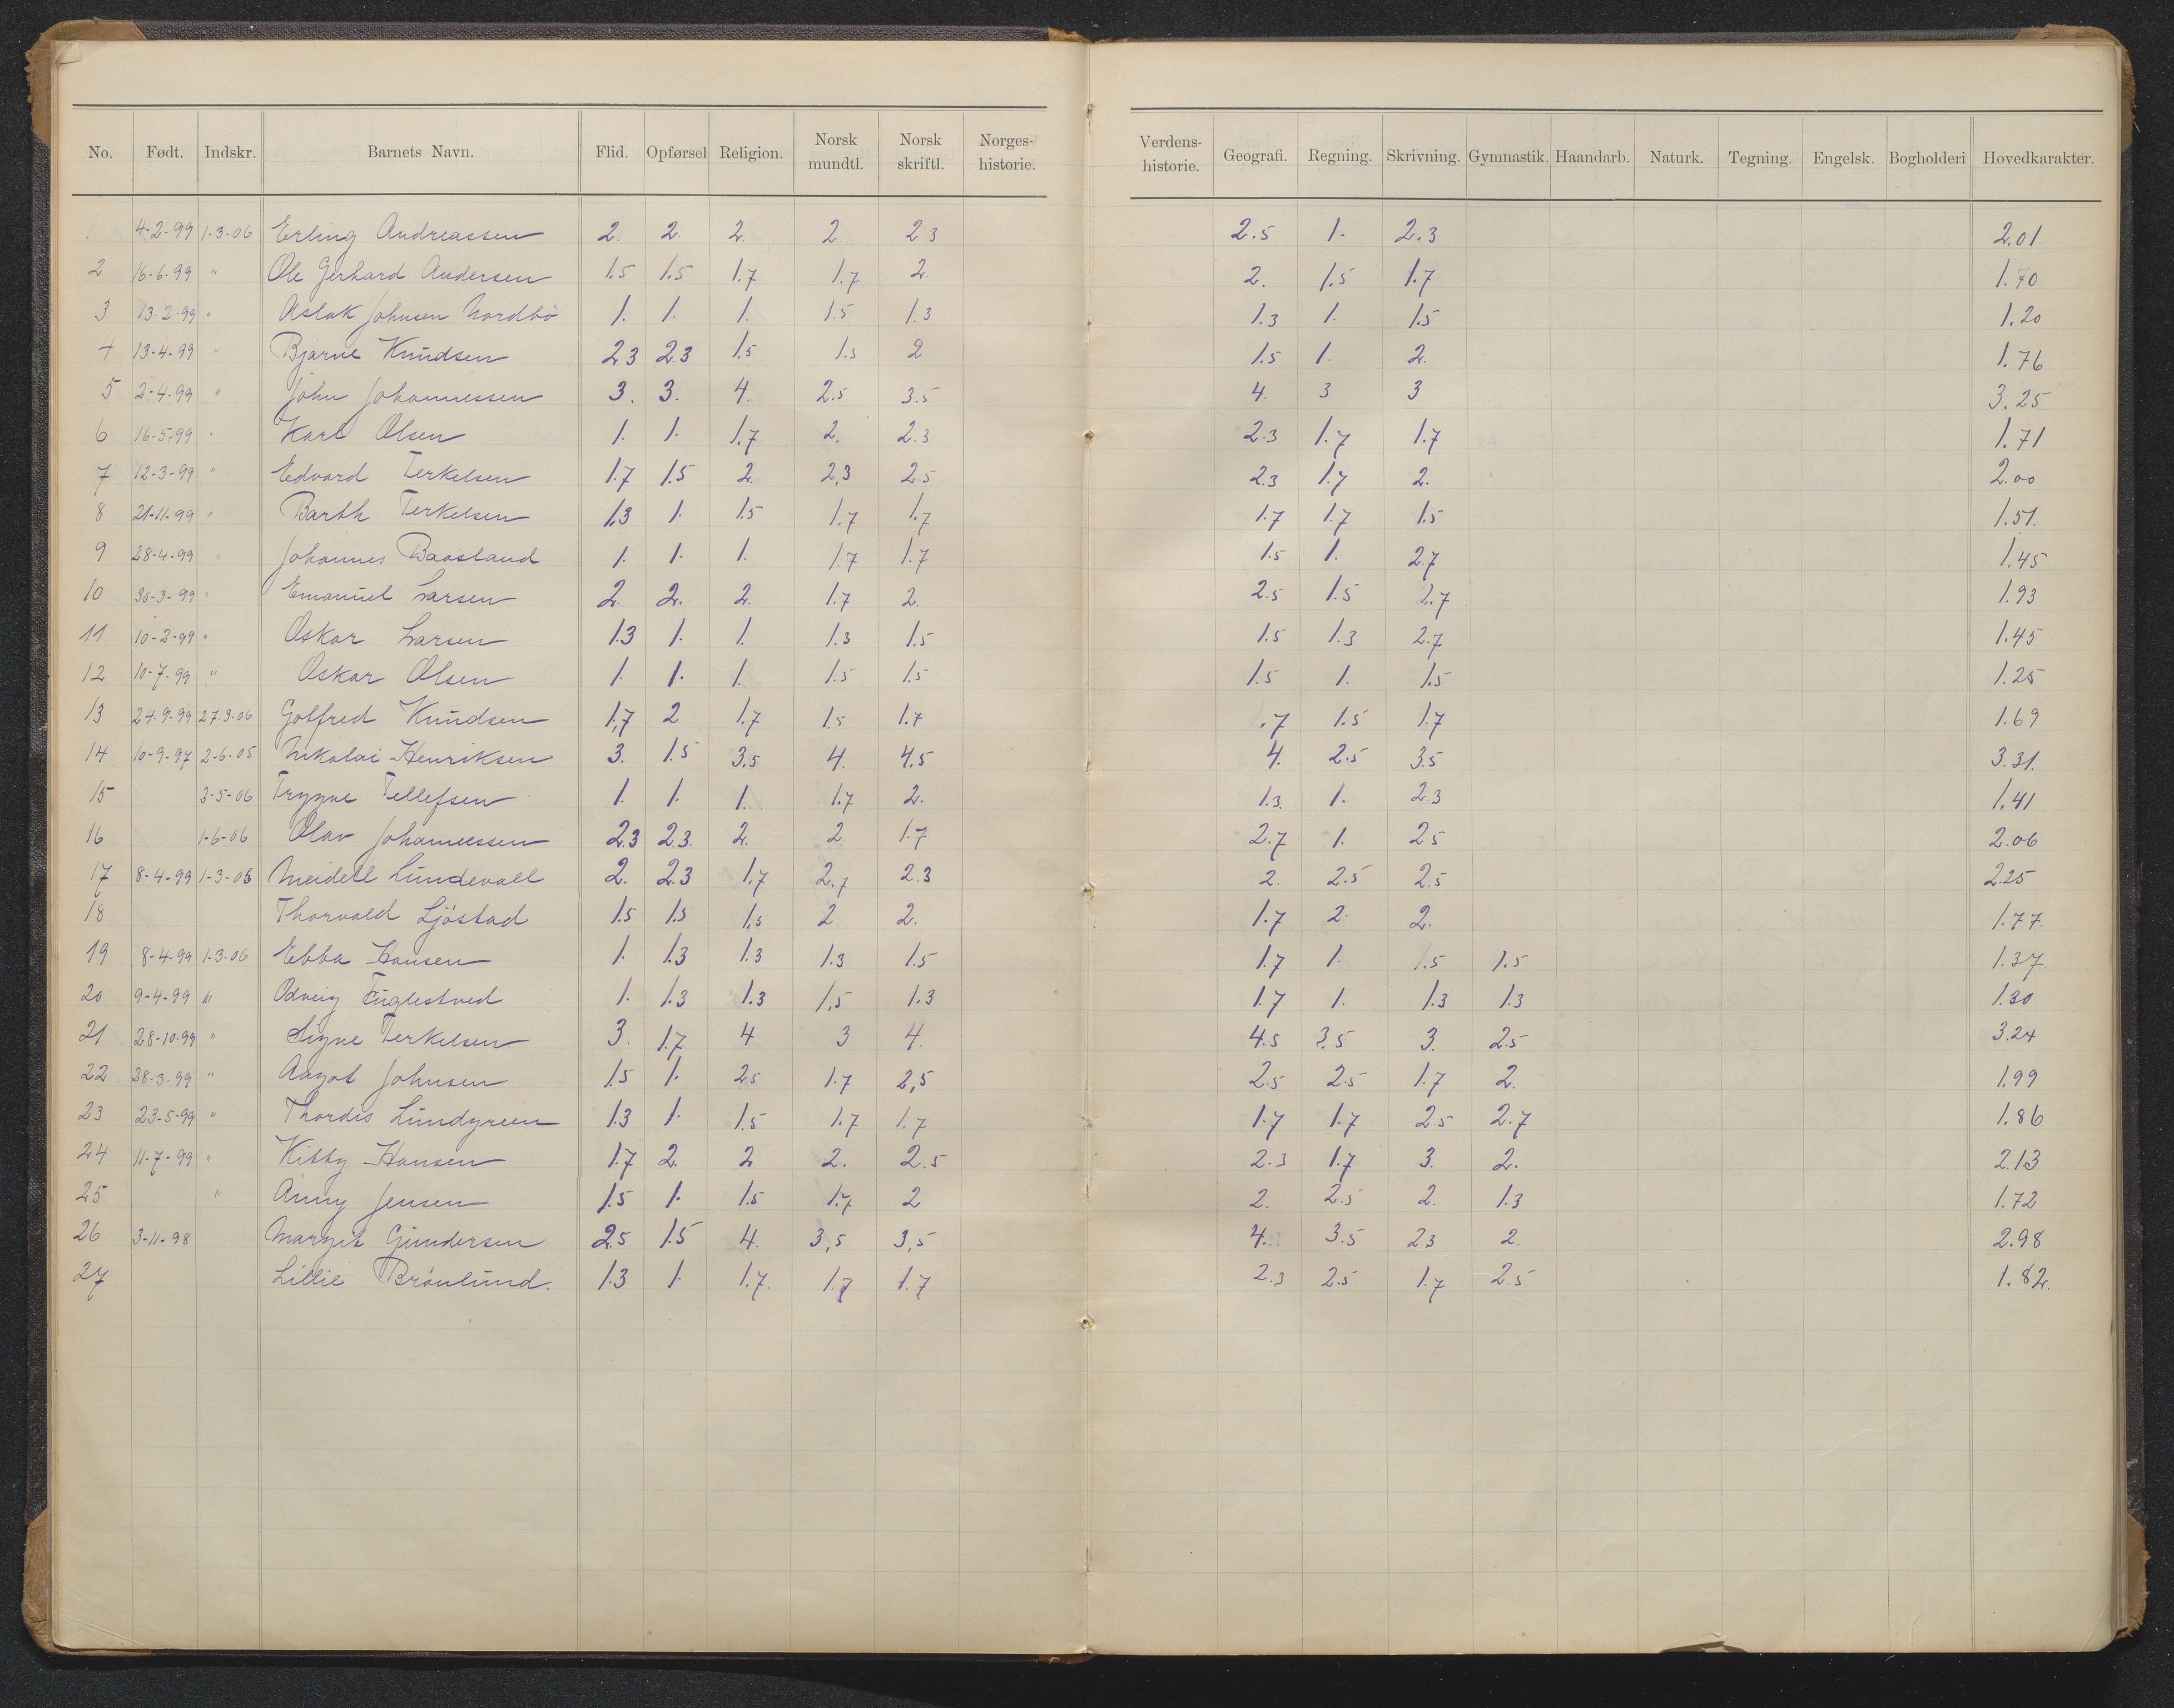 No. Født. Indskr. Barnets Navn. Flid. Opførsel Religion. Norsk mundtl. Norsk skriftl. Norges-historie. Verdens-historie. Geografi. Regning. Skrivning. Gymnastik. Haandarb. Naturk. Tegning. Engelsk. Bogholderi Hovedkarakter.
4-2-99 1-3-06 Erling Andreassen 2. 2. 2. 2. 2.3 2.5 1. 2.3 2.01
2 16-6-99 " Ole Gerhard Andersen 1.5 1.5 1.7 1.7 2. 2. 1.5 1.7 1.70
3 13-2-99 " Aslak Johnsen Nordbö 1. 1. 1. 1.5 1.3 1.3 1. 1.5 1.20
4 13-4-99 " Bjarne Knudsen 2.3 2.3 1.5 1.5 2 1.5 1. 2. 1.76
5 2-4-99 " John Johannessen 3. 3. 4. 2.5 3.5 4. 3 3 3.25
6 16-5-99 " Karl Olsen 1. 1. 1.7 2. 2.3 2.3 1.7 1.7 1.71
7 12-3-99 " Edvard Terkelsen 1.7 1.5 2. 2,3 2.5 2.3 1.7 2. 2.00
8 21-11-99 " Barth Terkelsen 1.3 1. 1.5 1.7 1.7 1.7 1.7 1.5 1.51
9 28-4-99 " Johannes Baasland 1. 1. 1. 1.7 1.7 1.5 1. 2.7 1.45
10 30-3-99 " Emanuel Larsen 2. 2. 2. 1.7 2. 2.5 1.5 1.7 1.93
11 10-2-99 " Oskar Larsen 1.3 1. 1. 1.3 1.5 1.5 1.3 2.7 1.45
12 10-7-99 " Oskar Olsen 1. 1. 1. 1.5 1.5 1.5 1. 1.5 1.25
13 24.9.99 27.3.06 Gotfred Knudsen 1,7 2 1.7 1.5 1.7 1.7 1.5 1.7 1.69
14 10-9-97 2-6-05 Nikolai Henriksen 3. 1.5 3.5 4. 4.5 4. 2.5 3.5 3.31
15 3-5-06 Trygve Tellefsen 1. 1. 1. 1.7 2. 1.3. 1. 2.3 1.41
16 1-6-06 Olav Johannessen 2.3 2.3. 2. 2. 1.7 2.7 1. 2.5 2.06
17 8-4-99 1-3-06 Meidell Lundevall 2. 2.3 1.7 2.7 2.3 2. 2.5 2.5 2.25
18 Thorvald Ljöstad 1.5 1.5 1.5 2 2. 1.7 2. 2. 1.77
19 8-4-99 1-3-06 Ebba Hansen 1. 1.3 1.3 1.3 1.5 1.7 1. 1.5 1.5 1.37
20 9-4-99 " Odveig Fuglestved 1. 1.3 1.3 1,5 1.3 1.7 1. 1.3 1.3 1.30
21 28-10-99 " Signe Terkelsen 3. 1.7 4 3 4. 4.5 3.5 3. 2.5 3.24
22 28-3-99 " Aagot Johnsen 1.5 1. 2.5 1.7 2,5 2.5 2.5 1.7 2. 1.99
23 23-5-99 " Thordis Lundgreen 1.3 1. 1.5 1.7 1.7 1.7 1.7 2.5 2.7 1.86
24 11-7-99 " Kitty Hansen 1.7 2. 2 2. 2.5 2.3 1.7 3. 2. 2.13
25 " Anny Jensen 1.5 1. 1.5 1.7 2 2. 2.5 2. 1.3 1.72
26 3-11-98 Margit Gundersen 2.5 1.5 4. 3,5 3,5 4. 3.5 2.3 2. 2.98
27 Lillie Brönlund. 1.3 1. 1.7. 1.7 1.7 2.3 2.5 1.7 2.5 1.82.